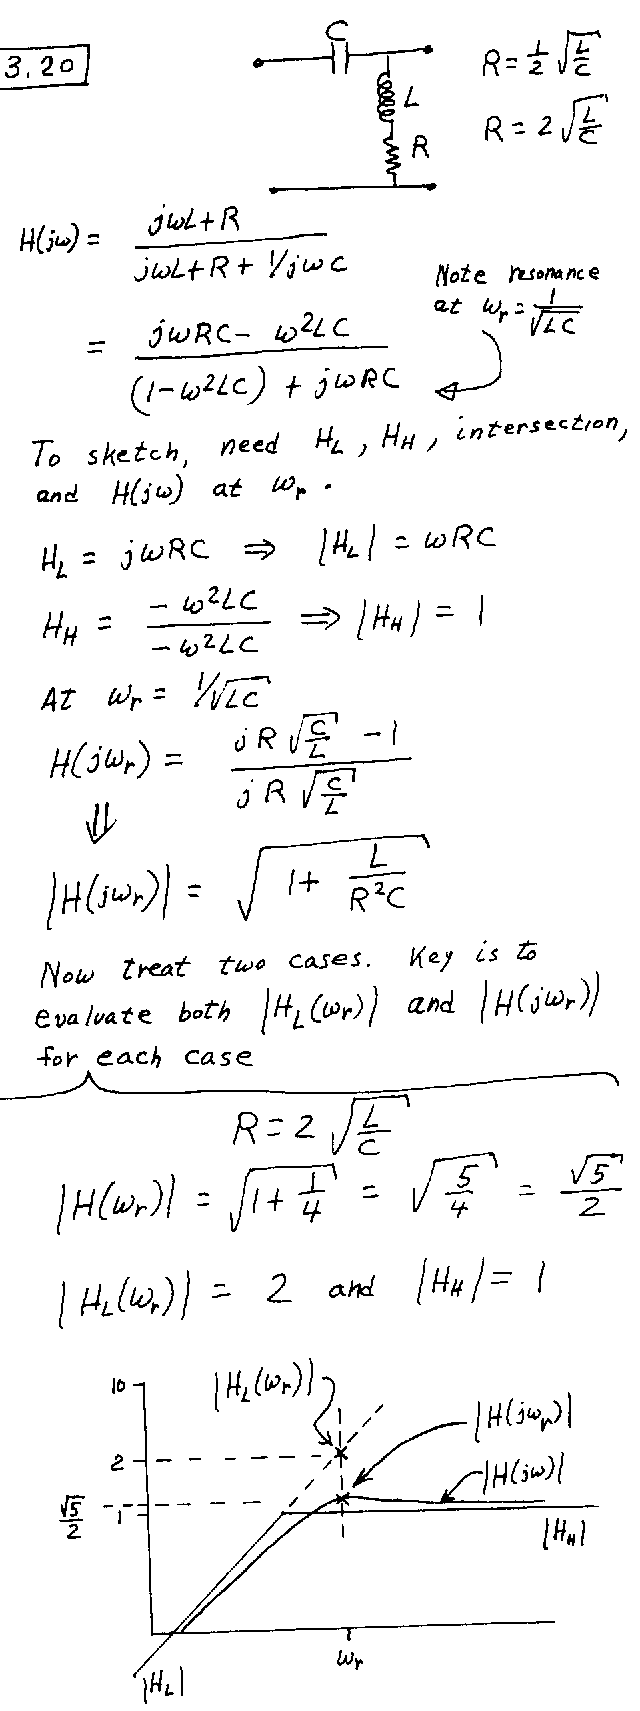 3.20
C
L
R
R = 1/2 √(L/C)
R = 2 √(L/C)
H(jω) = (jωL + R) / (jωL + R + 1/jωC)
Note resonance
at ωr = 1/√(LC)
= (jωRC - ω²LC) / ((1-ω²LC) + jωRC)
To sketch, need HL, HH, intersection,
and H(jω) at ωr.
HL = jωRC ⇒ |HL| = ωRC
HH = (-ω²LC) / (-ω²LC) ⇒ |HH| = 1
At ωr = 1/√LC
H(jωr) = (jR √(C/L) - 1) / (jR √(C/L))
⇓
|H(jωr)| = √(1 + L/(R²C))
Now treat two cases. Key is to
evaluate both |HL(ωr)| and |H(jωr)|
for each case
R = 2 √(L/C)
|H(ωr)| = √(1 + 1/4) = √(5/4) = √5/2
|HL(ωr)| = 2 and |HH| = 1
10
|HL(ωr)|
|H(jωr)|
2
|H(jω)|
√5/2
1
|HH|
ωr
|HL|